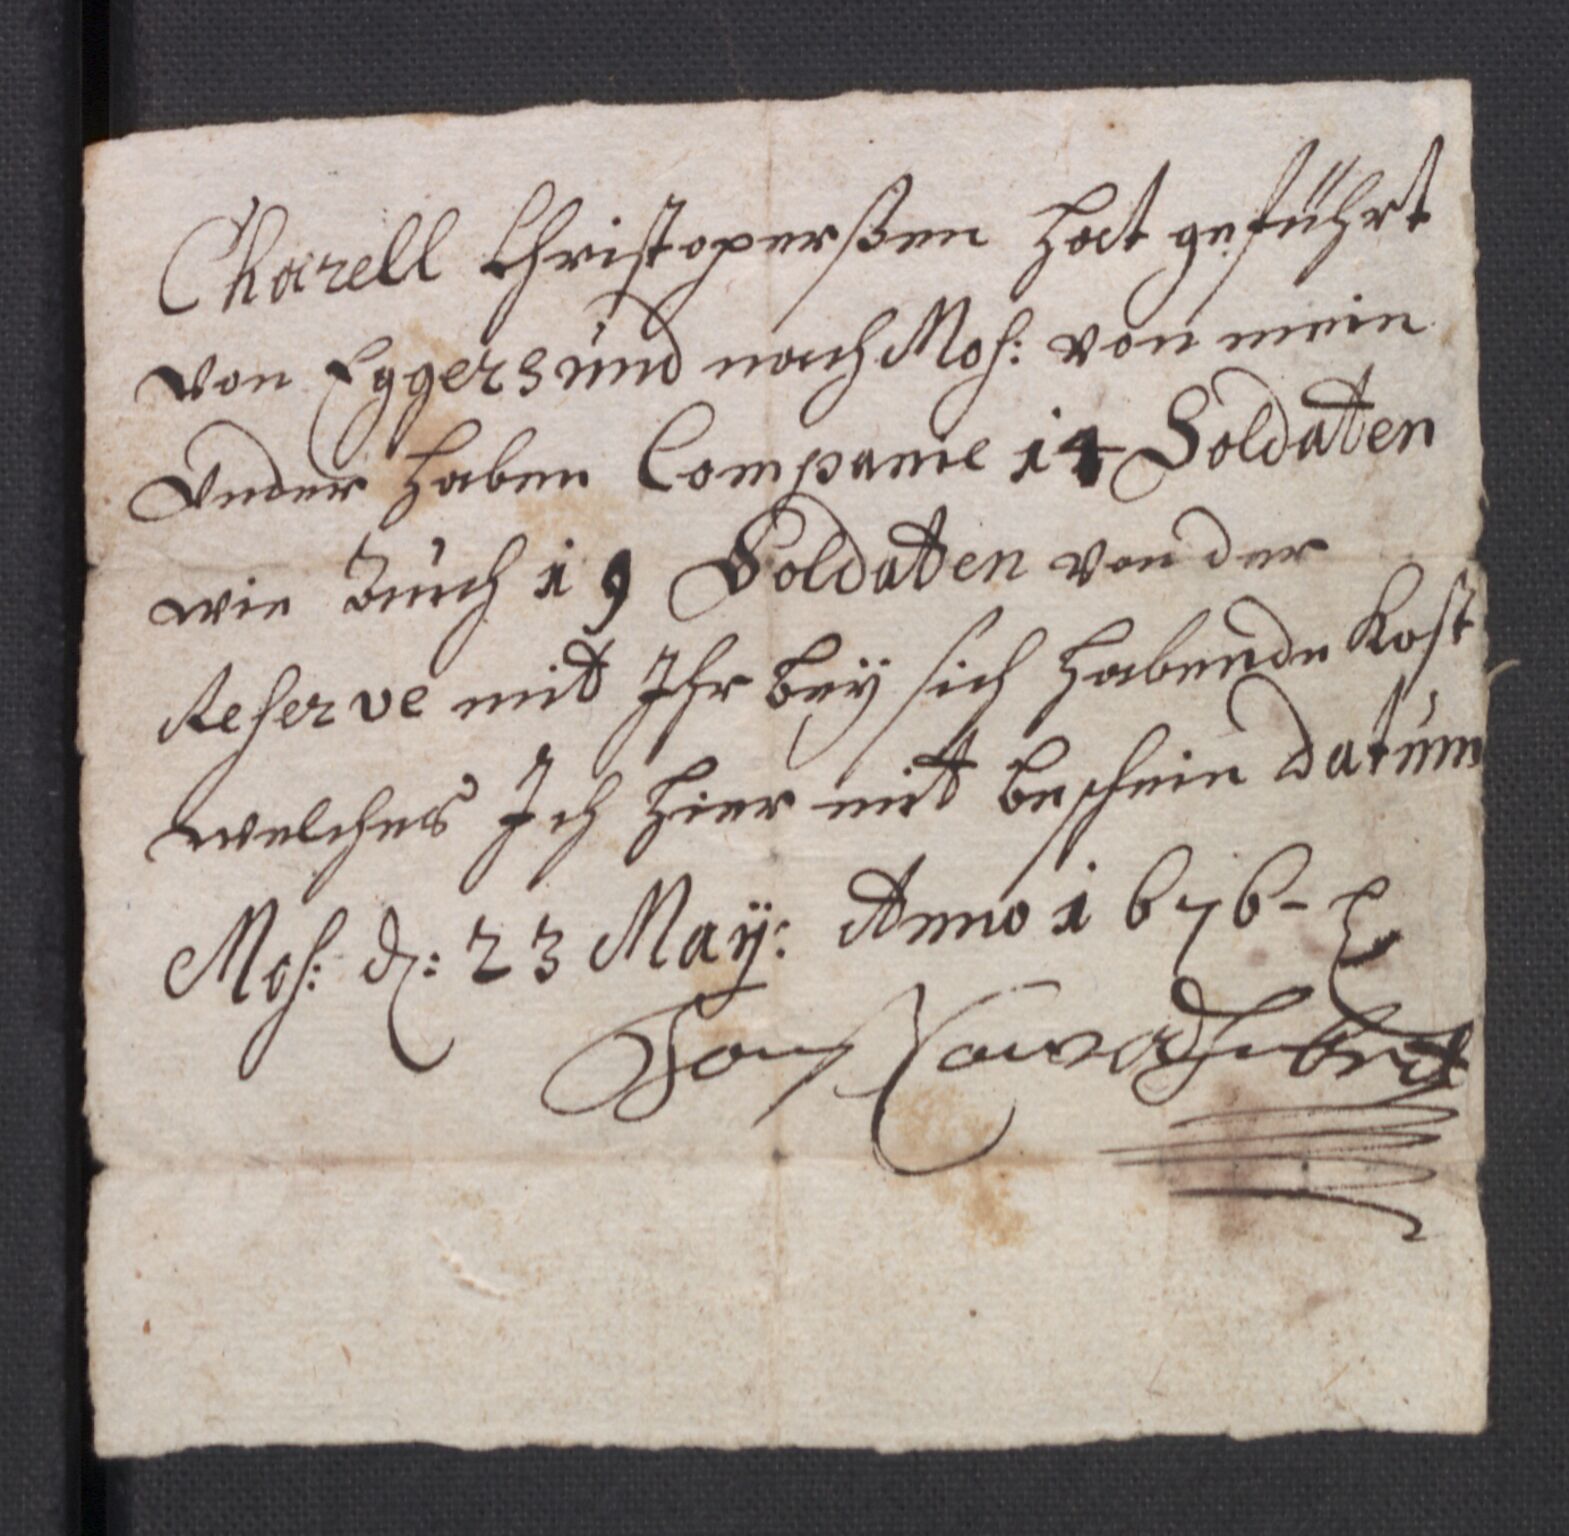 Charell Christoperßen hat geführt
von Eggersund nach Moß: von mein
Vnder haben Companie 14 Soldaten
wie auch 19 Soldaten von der
Reserve mit Ihr bey sich habende Kost
welches Ich hier mit beschein Datum
Moß: d: 23 May: Anno 1676-